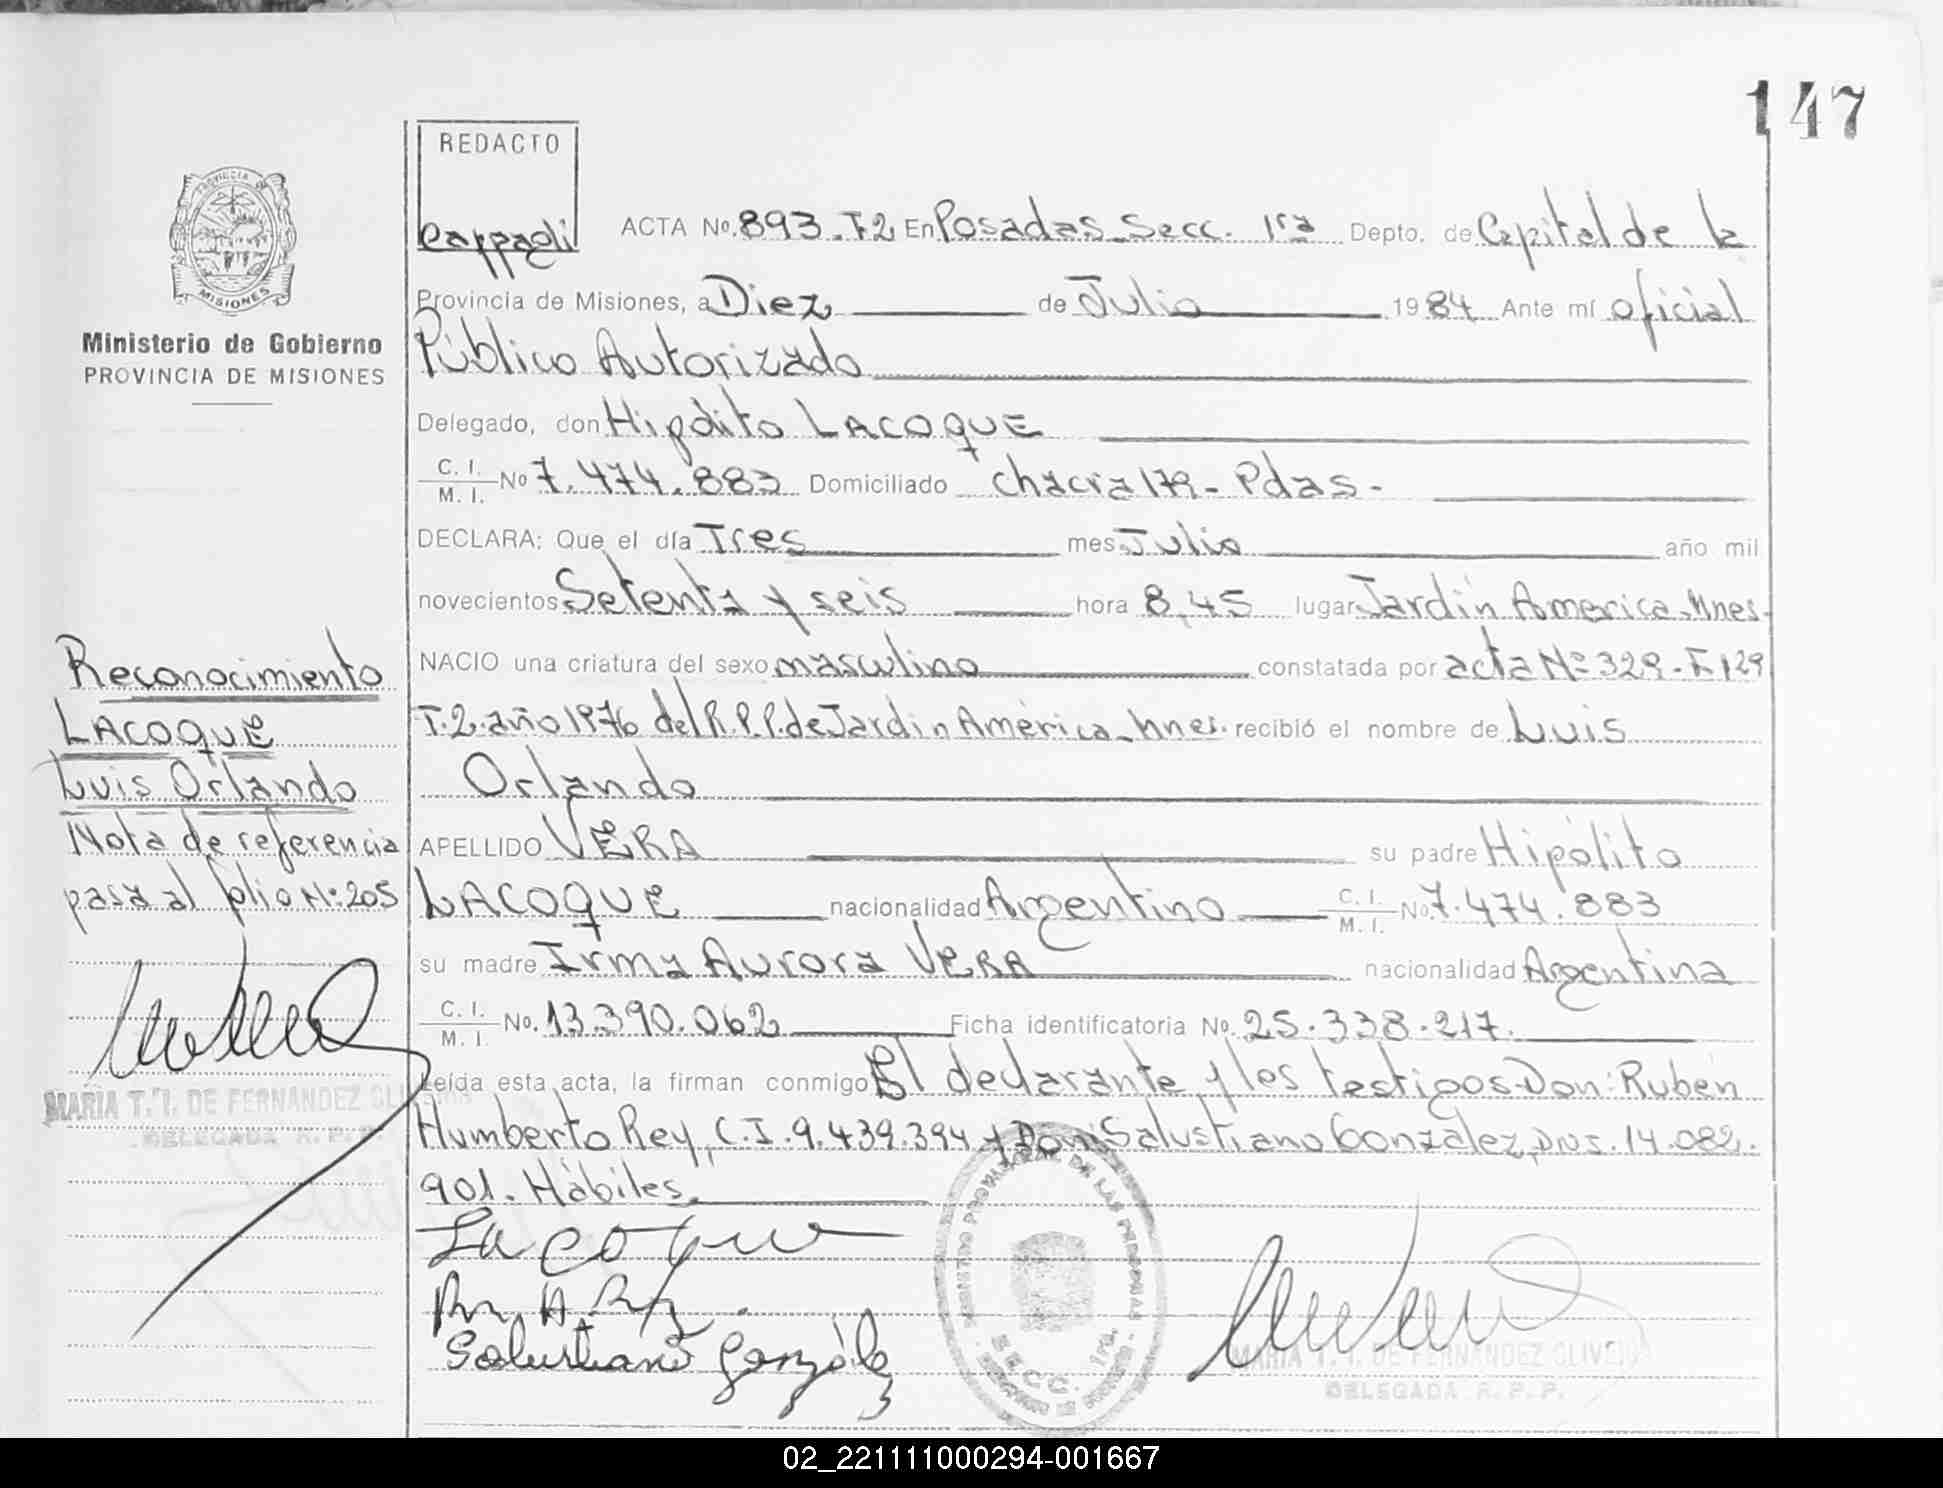 147
REDACTO
Cappagli
PROVINCIA
MISIONES
Ministerio de Gobierno
PROVINCIA DE MISIONES
ACTA No. 893. T.2 En Posadas Secc. 1ra Depto. de Capital de la
Provincia de Misiones, a Diez de Julio 1984 Ante mí oficial
Público Autorizado
Delegado, don Hipólito LACOQUE
C. I. / M. I. No 7.474.883 Domiciliado chacra 179 - Pdas -
DECLARA: Que el día Tres mes Julio año mil
novecientos Setenta y seis hora 8,45 lugar Jardín America, Mnes.
NACIO una criatura del sexo masculino constatada por acta Nº 329 - F. 129
T. 2. año 1976 del R.P.P. de Jardín América, Mnes. recibió el nombre de Luis
Orlando
APELLIDO VERA su padre Hipólito
LACOQUE nacionalidad Argentino C. I. / M. I. No. 7.474.883
su madre Irma Aurora VERA nacionalidad Argentina
C. I. / M. I. No. 13.390.062 Ficha identificatoria No. 25.338.217.
Leída esta acta, la firman conmigo El declarante y los testigos Don: Rubén
Humberto Rey, C.I. 9.439.394 y Don: Salustiano González, DNI. 14.082.
901. Hábiles.
Lacoque
Salustiano González
Reconocimiento
LACOQUE
Luis Orlando
Nota de referencia
pasa al folio Nº 205
MARIA T. I. DE FERNANDEZ OLIVEIRA
DELEGADA R. P. P.
REGISTRO PROVINCIAL DE LAS PERSONAS
SECC. 1ra.
MARIA T. I. DE FERNANDEZ OLIVEIRA
DELEGADA R. P. P.
02_221111000294-001667